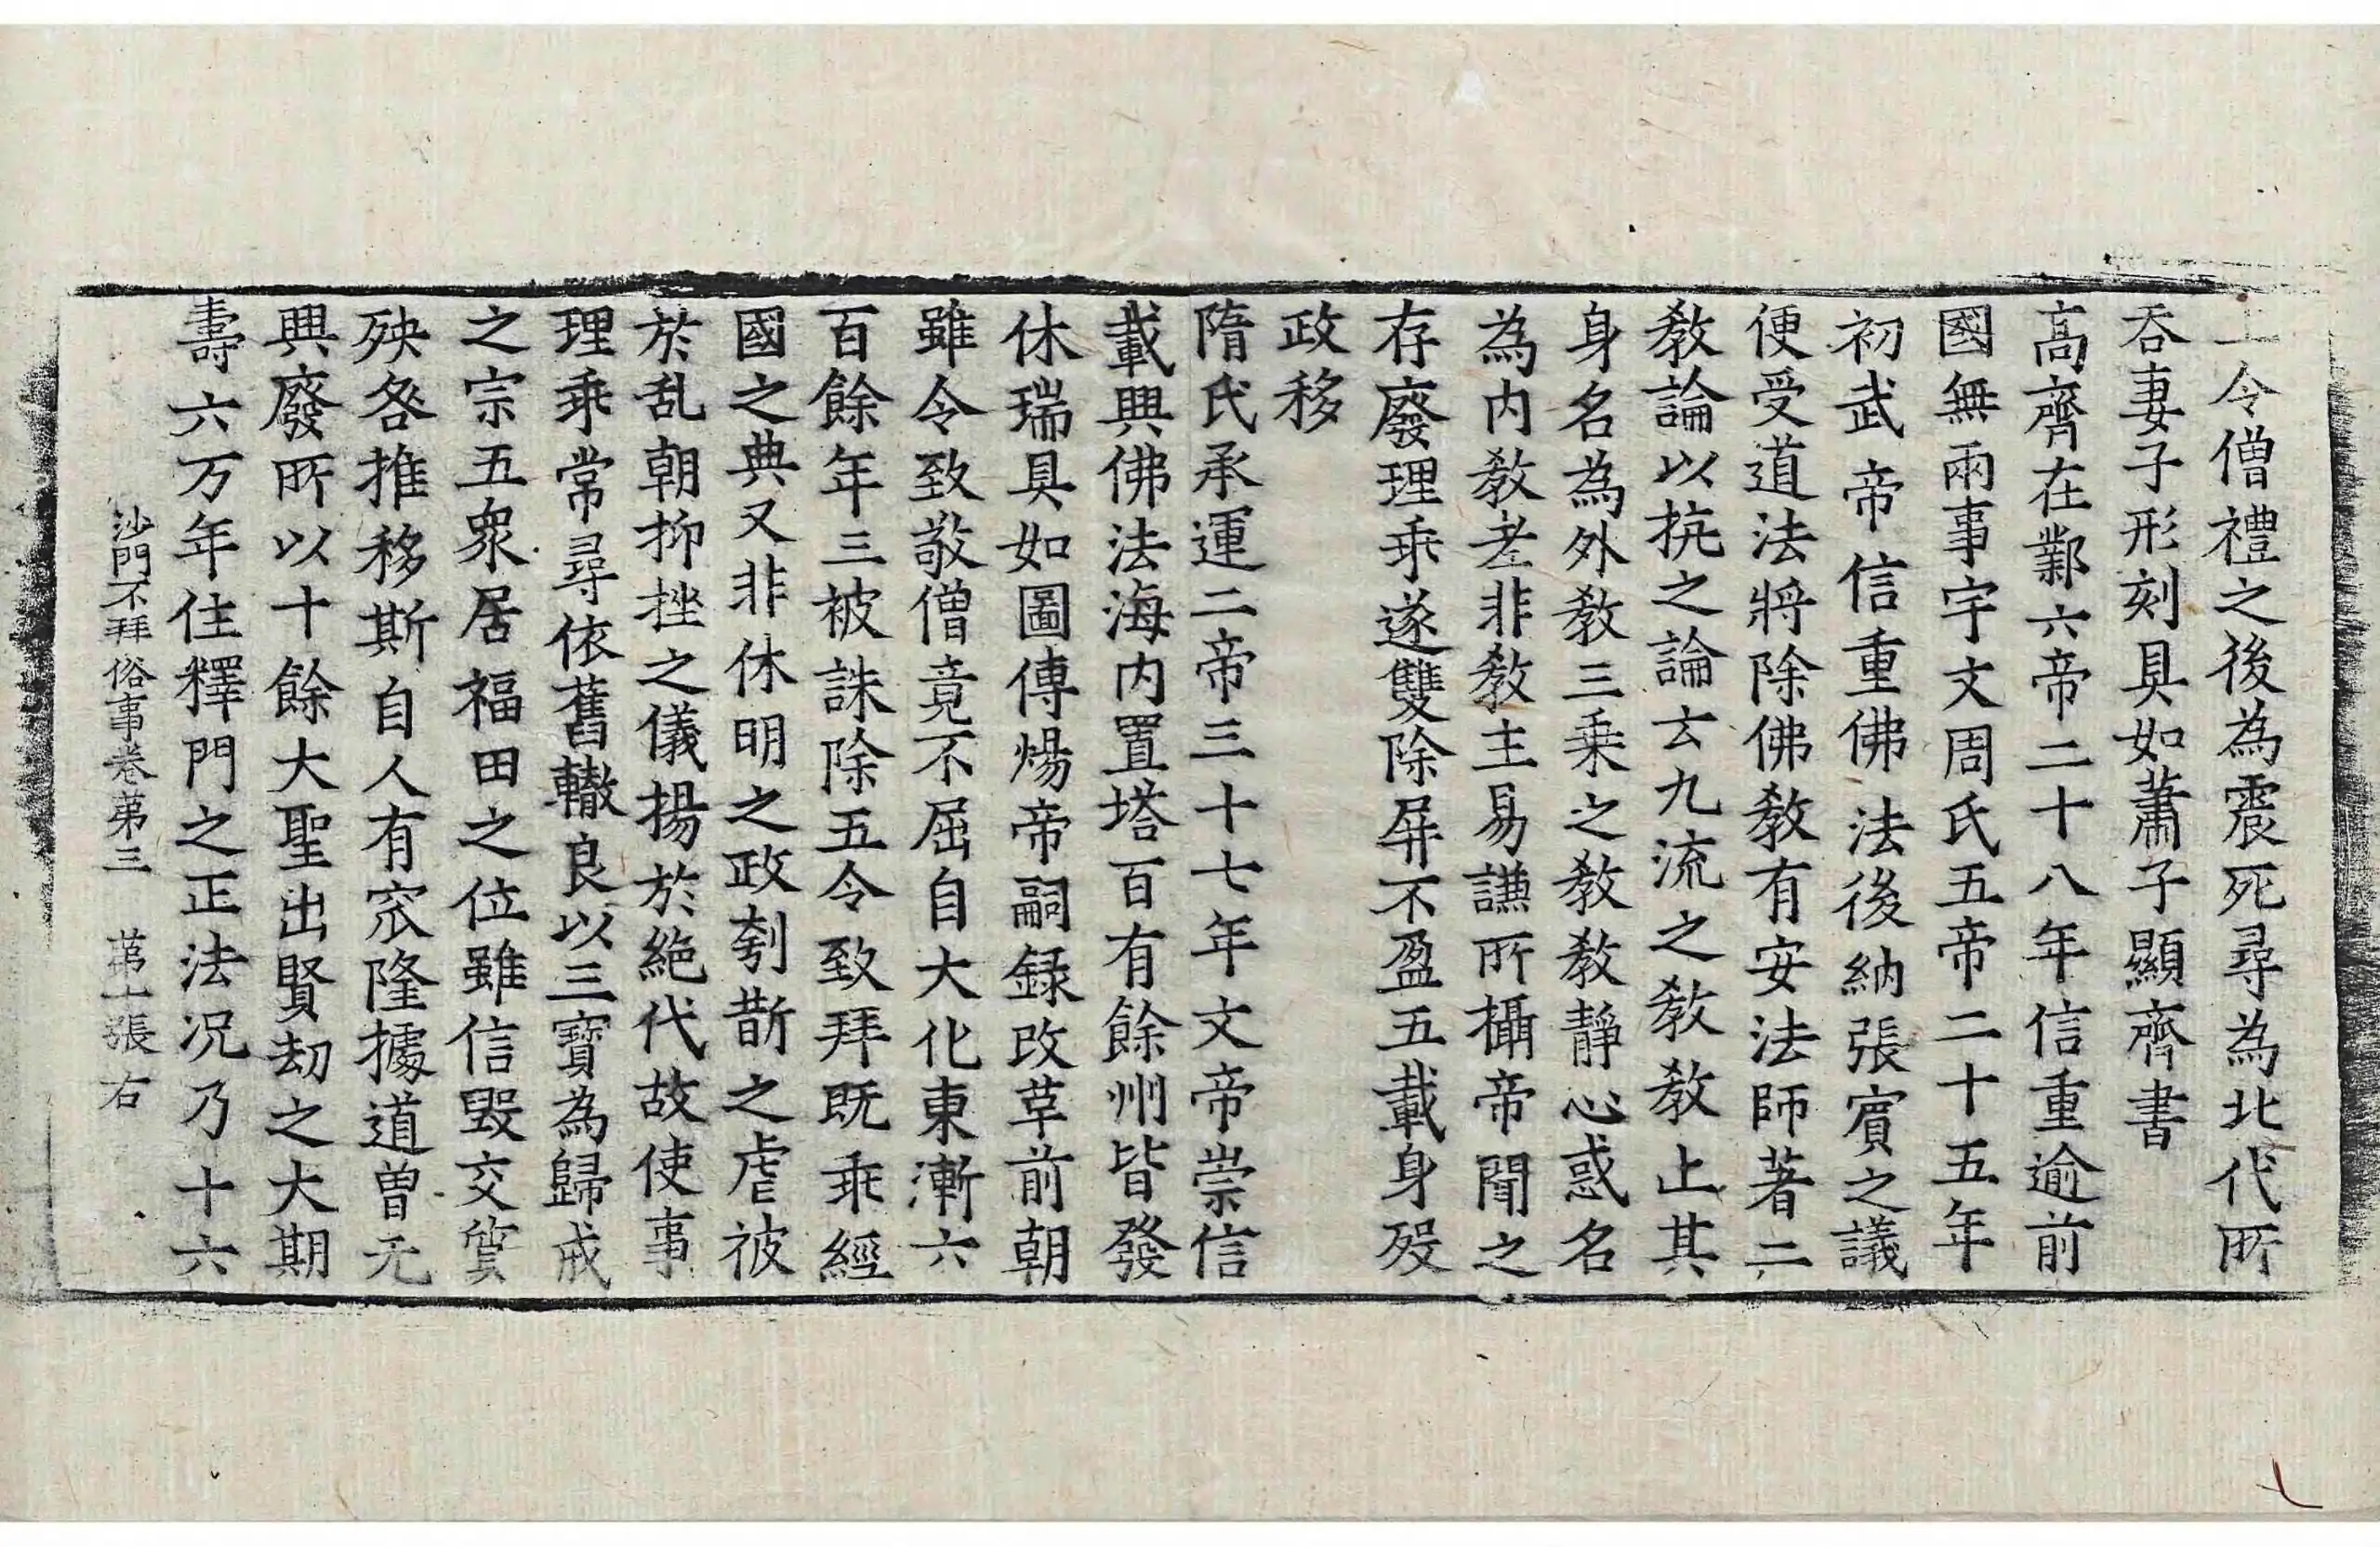 上令僧禮之後為震死尋為北代所
吞妻子形刻具如蕭子顯齊書
高齊在鄴六帝二十八年信重逾前
國無兩事宇文周氏五帝二十五年
初武帝信重佛法後納張賓之議
便受道法將除佛教有安法師著二
教論以抗之論云九流之教教止其
身名為外教三乗之教教靜心惑名
為内教老非教主易謙所攝帝聞之
存廢理乖遂雙除屏不盈五載身歿
政移
隋氏承運二帝三十七年文帝崇信
載興佛法海内置塔百有餘州皆發
休瑞具如圖傳煬帝嗣録改革前朝
雖令致敬僧竟不屈自大化東漸六
百餘年三被誅除五令致拜既乖經
國之典又非休明之政刳斮之虐被
於乱朝抑挫之儀揚於絶代故使事
理乖常尋依舊轍良以三寶為歸戒
之宗五衆居福田之位雖信毀交貿
殃咎推移斯自人有窊隆據道曽无
興廢所以十餘大聖出賢劫之大期
壽六万年住釋門之正法况乃十六
沙門不拜俗事卷第三 第十張 右